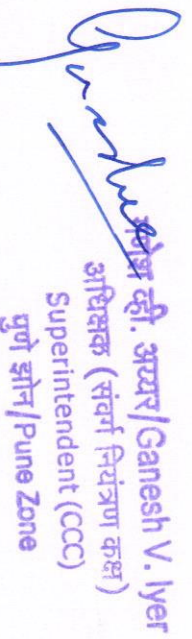 गणेश व्ही. अय्यर/Ganesh V. Iyer
अधिक्षक (संवर्ग नियंत्रण कक्ष)
Superintendent (CCC)
पुणे झोन/Pune Zone